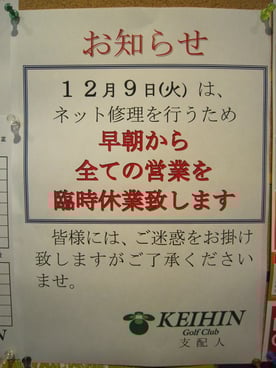 お知らせ
12月9日(火)は、
ネット修理を行うため
早朝から
全ての営業を
臨時休業致します
皆様には、ご迷惑をお掛け
致しますがご了承ください
ませ。
KEIHIN
Golf Club
支配人